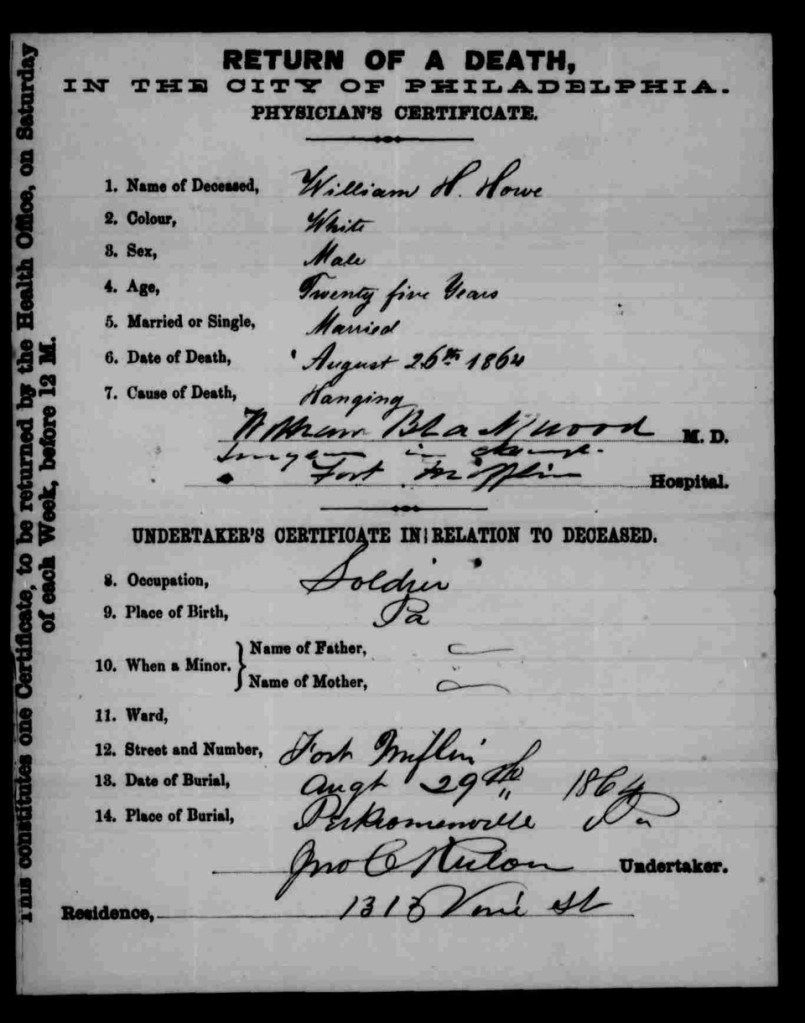 RETURN OF A DEATH,
IN THE CITY OF PHILADELPHIA.
PHYSICIAN'S CERTIFICATE.
1. Name of Deceased, William H. Howe
2. Colour, White
3. Sex, Male
4. Age, Twenty five Years
5. Married or Single, Married
6. Date of Death, August 26th 1864
7. Cause of Death, Hanging
William Blackwood M. D.
Surgeon in charge.
Fort Mifflin Hospital.
UNDERTAKER'S CERTIFICATE IN RELATION TO DECEASED.
8. Occupation, Soldier
9. Place of Birth, Pa
10. When a Minor. Name of Father,
Name of Mother,
11. Ward,
12. Street and Number, Fort Mifflin
13. Date of Burial, Augt 29th 1864
14. Place of Burial, Perkiomenville Pa
Jno C Undertaker.
Residence, Vine St
This constitutes one Certificate, to be returned by the Health Office, on Saturday
of each Week, before 12 M.